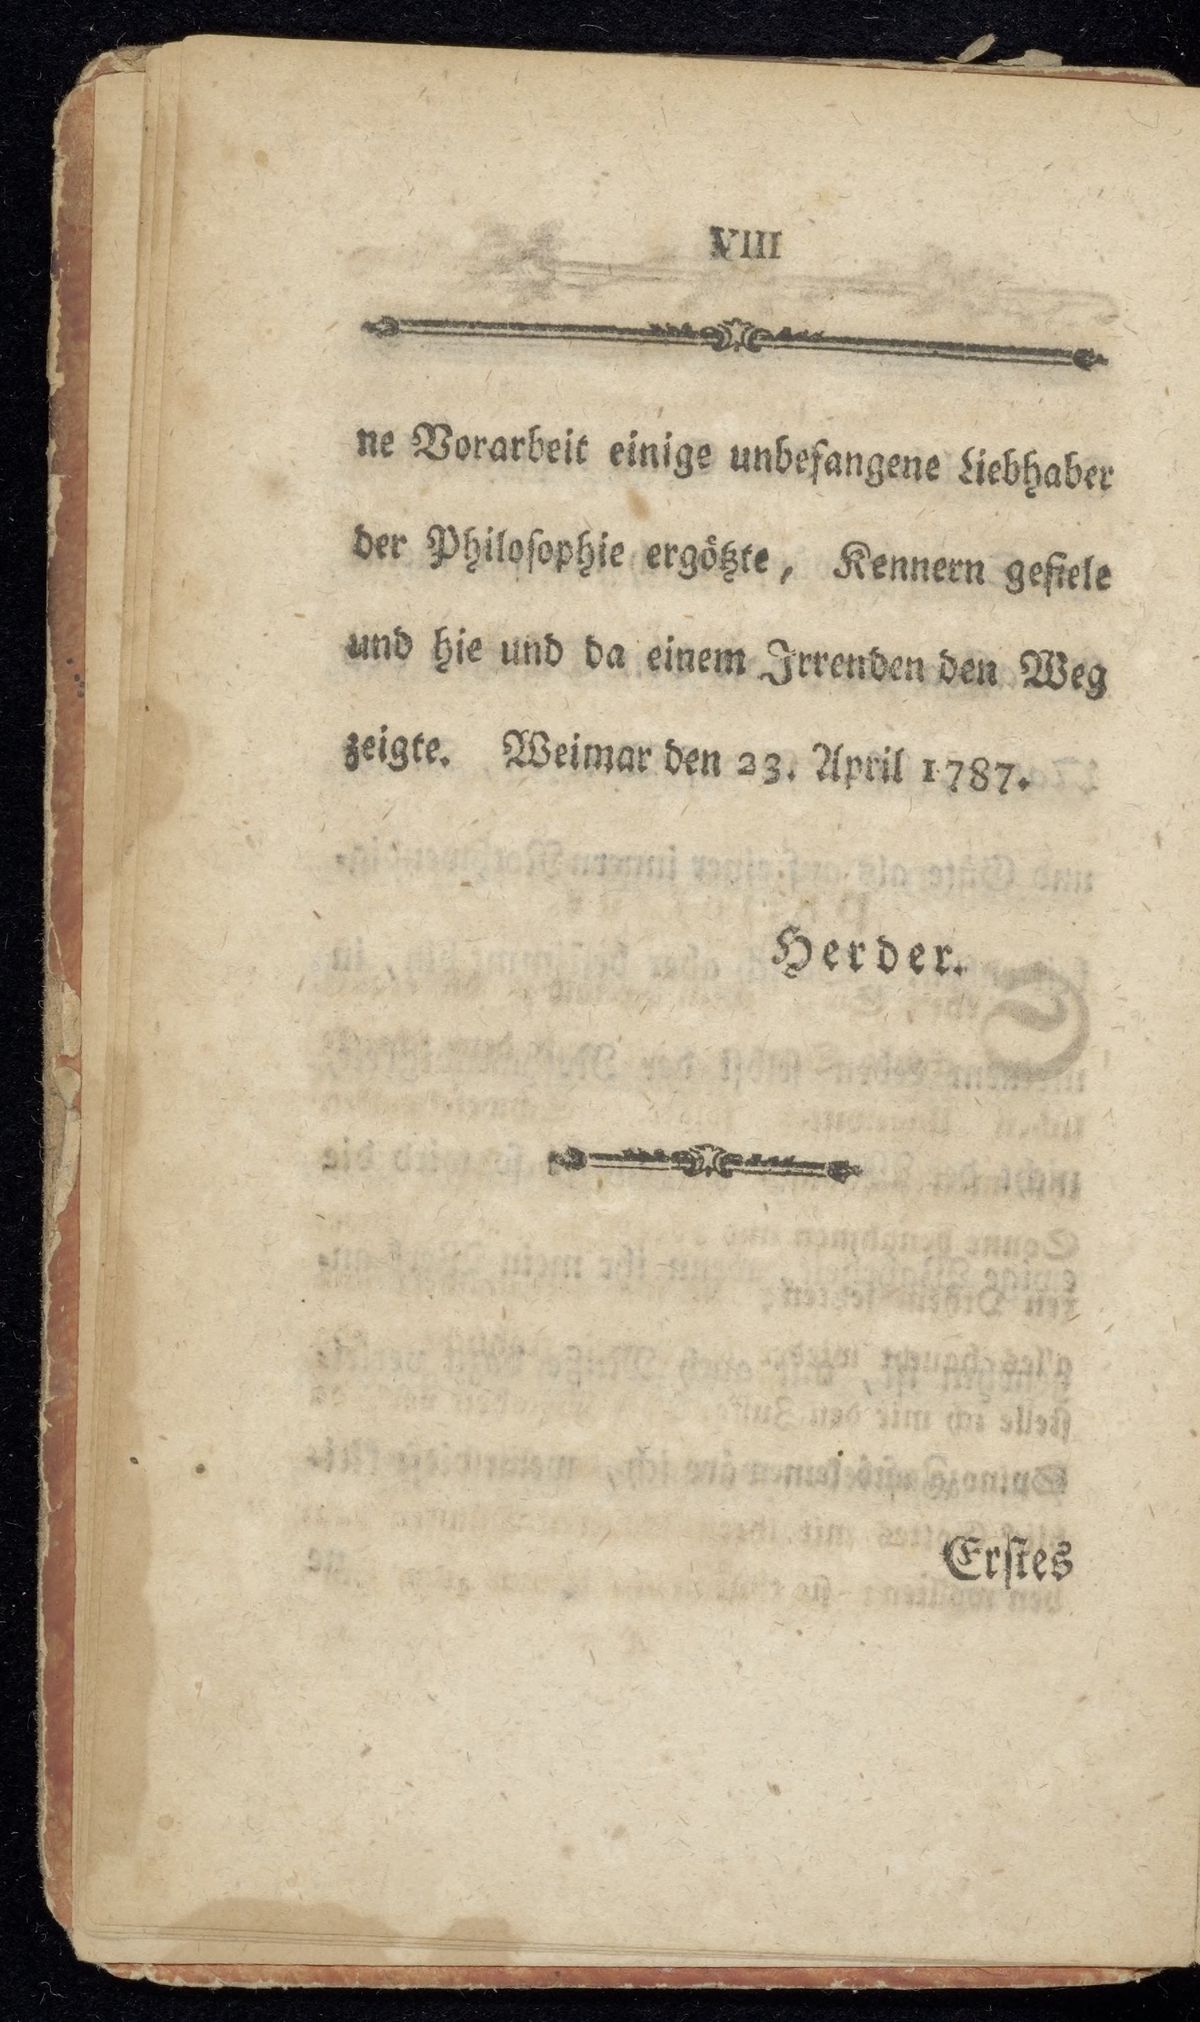 VIII
ne Vorarbeit einige unbefangene Liebhaber
der Philoſophie ergötzte, Kennern gefiele
und hie und da einem Irrenden den Weg
zeigte. Weimar den 23. April 1787.
Herder.
Erſtes